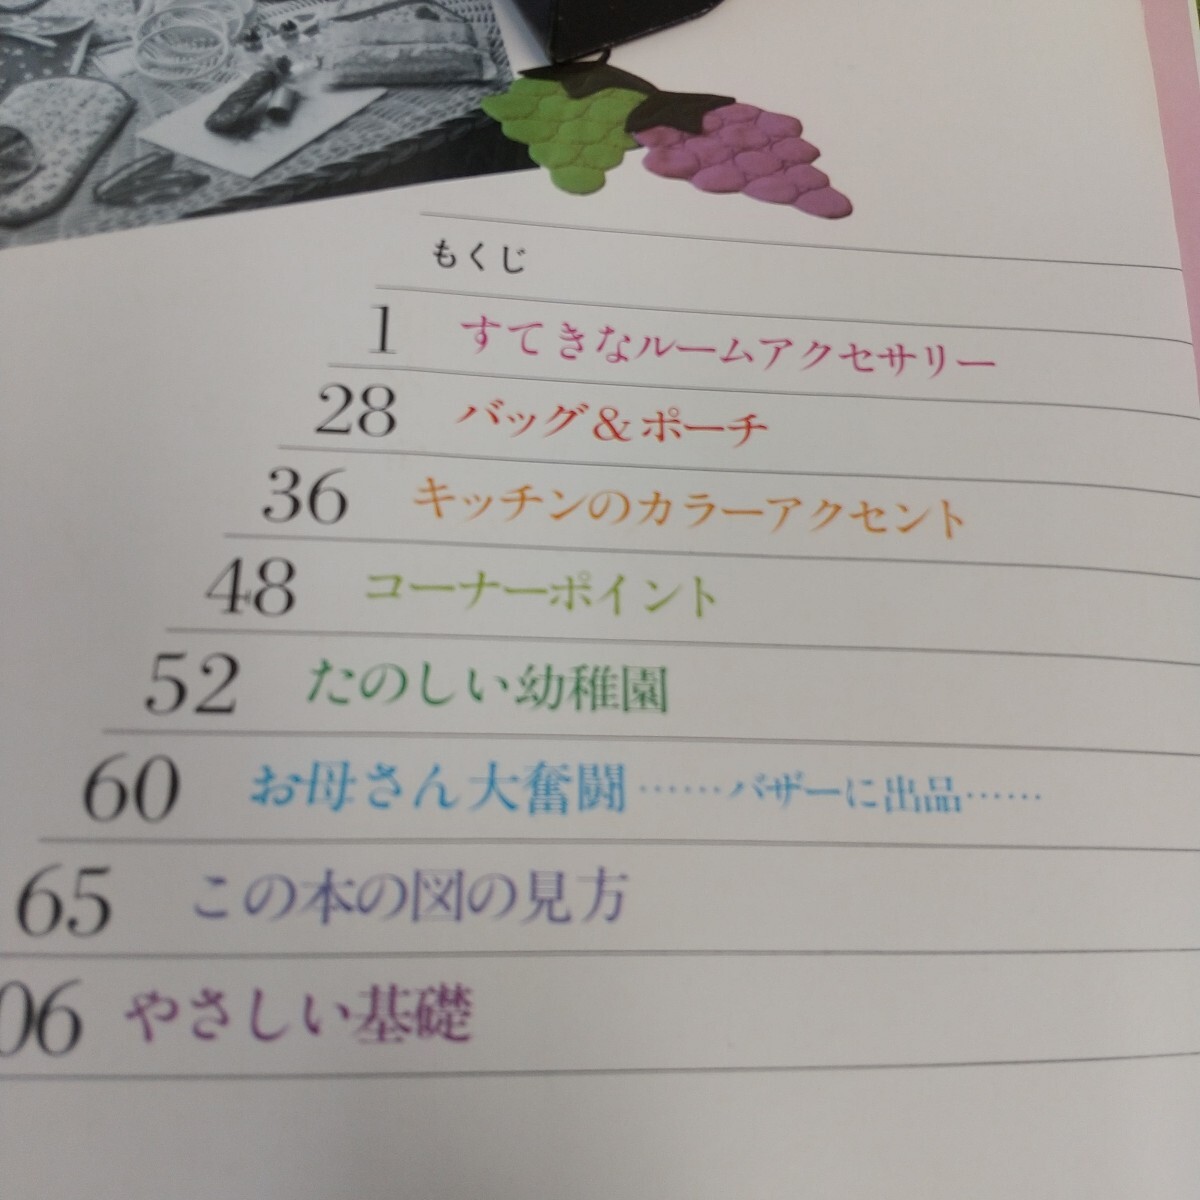 もくじ
1 すてきなルームアクセサリー
28 バッグ&ポーチ
36 キッチンのカラーアクセント
48 コーナーポイント
52 たのしい幼稚園
60 お母さん大奮闘……バザーに出品……
65 この本の図の見方
06 やさしい基礎